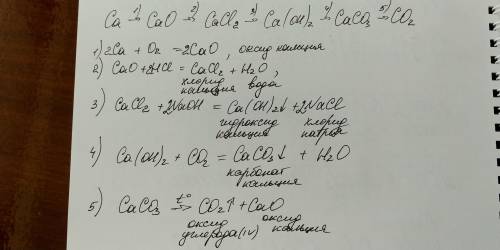 Ca 1)→ CaO 2)→ CaCl₂ 3)→ Ca(OH)₂ 4)→ CaCO₃ 5)→ CO₂
1) 2Ca + O₂ = 2CaO, оксид кальция
2) CaO + 2HCl = CaCl₂ + H₂O,
хлорид кальция вода
3) CaCl₂ + 2NaOH = Ca(OH)₂↓ + 2NaCl
гидроксид кальция хлорид натрия
4) Ca(OH)₂ + CO₂ = CaCO₃↓ + H₂O
карбонат
кальция
5) CaCO₃ t°→ CO₂↑ + CaO
оксид углерода (IV) оксид кальция